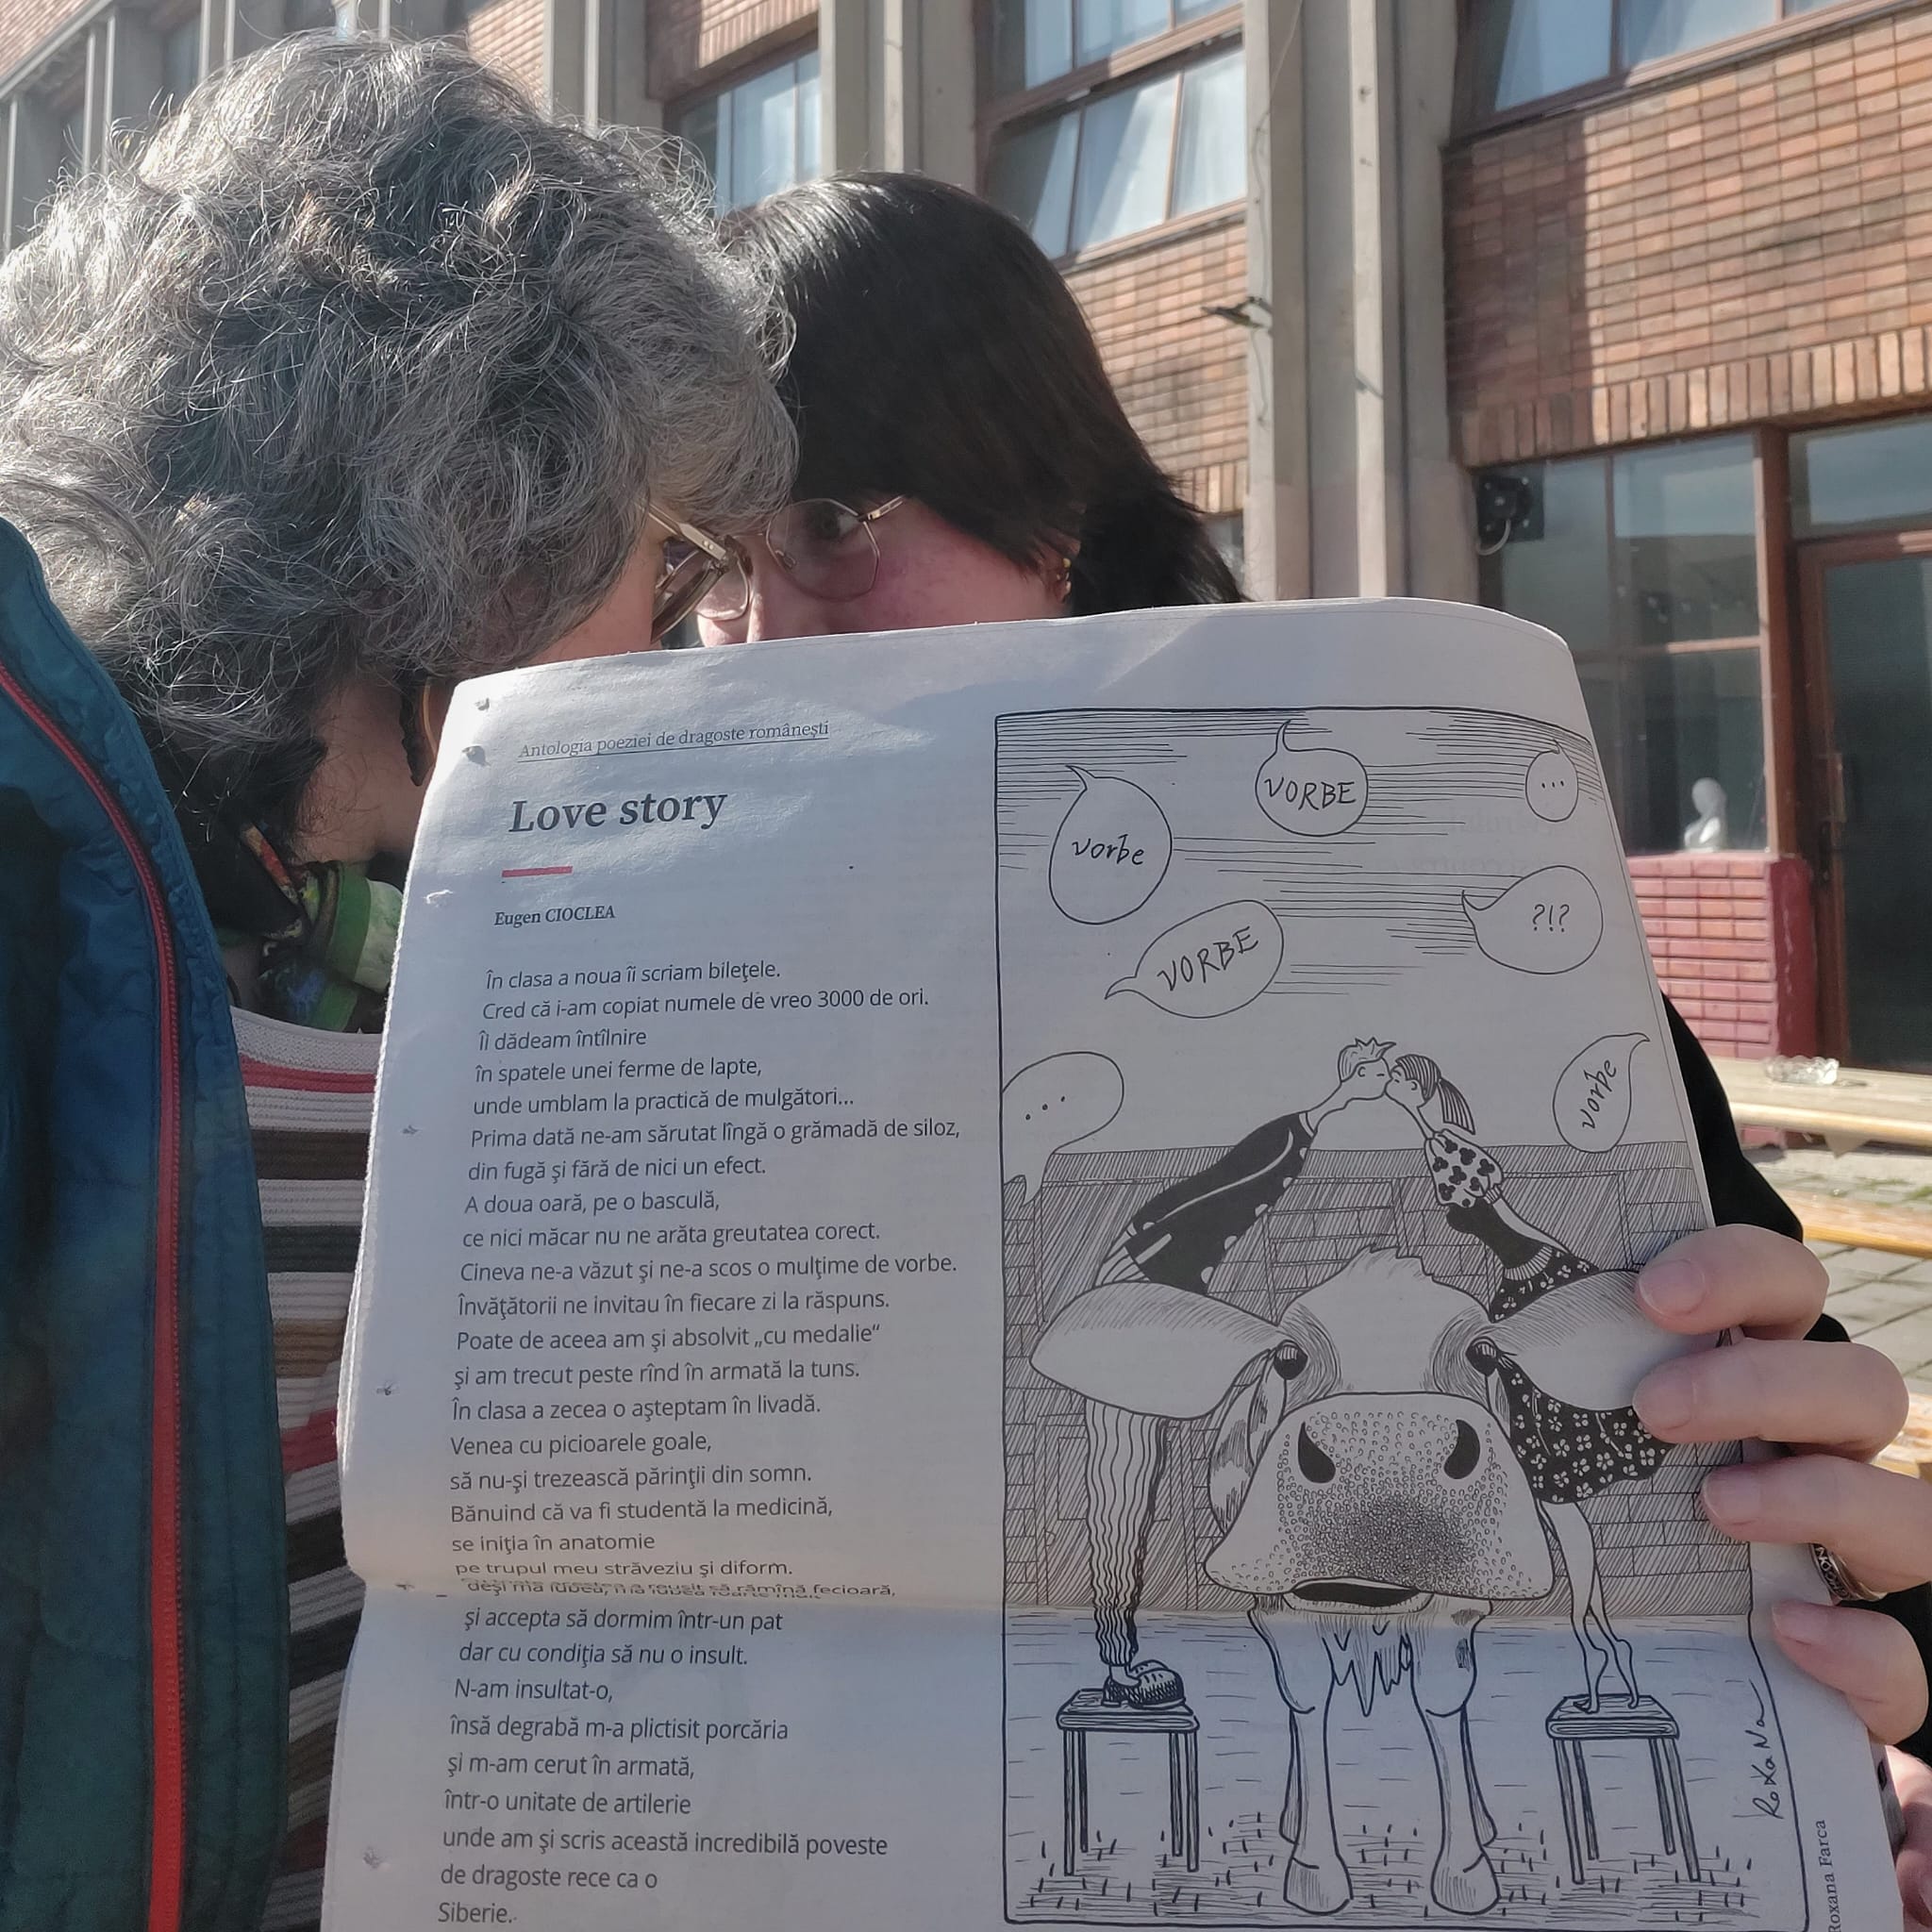 Antologia poeziei de dragoste românești
Love story
Eugen CIOCLEA
În clasa a noua îi scriam bileţele.
Cred că i-am copiat numele de vreo 3000 de ori.
Îi dădeam întîlnire
în spatele unei ferme de lapte,
unde umblam la practică de mulgători...
Prima dată ne-am sărutat lîngă o grămadă de siloz,
din fugă şi fără de nici un efect.
A doua oară, pe o basculă,
ce nici măcar nu ne arăta greutatea corect.
Cineva ne-a văzut şi ne-a scos o mulţime de vorbe.
Învăţătorii ne invitau în fiecare zi la răspuns.
Poate de aceea am şi absolvit „cu medalie“
şi am trecut peste rînd în armată la tuns.
În clasa a zecea o aşteptam în livadă.
Venea cu picioarele goale,
să nu-şi trezească părinţii din somn.
Bănuind că va fi studentă la medicină,
se iniţia în anatomie
pe trupul meu străveziu şi diform.
să rămînă fecioară,
şi accepta să dormim într-un pat
dar cu condiţia să nu o insult.
N-am insultat-o,
însă degrabă m-a plictisit porcăria
şi m-am cerut în armată,
într-o unitate de artilerie
unde am şi scris această incredibilă poveste
de dragoste rece ca o
Siberie.
vorbe
VORBE
...
VORBE
?!?
...
vorbe
RoXaNa
Roxana Farca